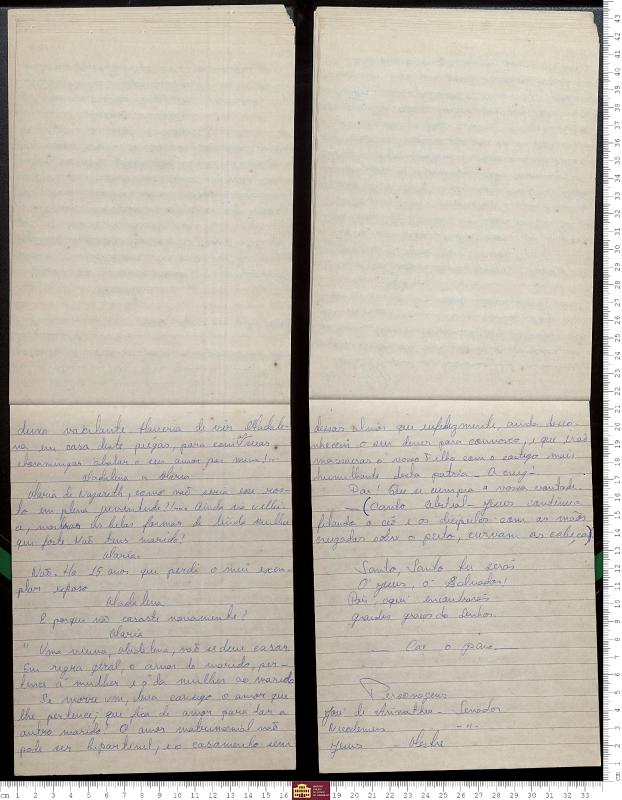 deixa vacilante
na em casa deste
Madalena a Maria
Maria de Nazareth, como não seria esse ros-
to em plena juventude!!... Ainda na velhi-
ce, mostras as belas formas de linda mulher
que foste. Não tens marido?
Maria
Não. Ha 15 anos que perdi o meu exem-
plar esposo
Madalena
E porque não casaste novamente?
Maria
" Uma viuva, Madalena, não se deve casar
Em regra geral, o amor do marido, per-
tence á mulher e o da mulher ao marido
Se morre um, leva consigo o amor que
lhe pertence; que fica de amor para dar a
outro marido? O amor matrimonial não
pode ser bipartivel, e o casamento sem
dessas almas que infelizmente, ainda desco-
nhecem o seu dever para convosco, e que irão
massacrar o vosso Filho com o castigo mais
humilhante desta patria - A cruz -
Pai! Que se cumpra a vossa vontade.
(Canto - Jesus continúa
fitando o céo e os discipulos com as mãos
cruzadas sobre o peito, curvam as cabeças)
Santo, Santo tu serás
O' Jesus, o' Salvador!
Pois, aqui encontrarás
Grandes graças do Senhor.
Cae o pano
Personagens
José de Arimathea - Senador
Nicodemus - " -
Jesus - Mestre